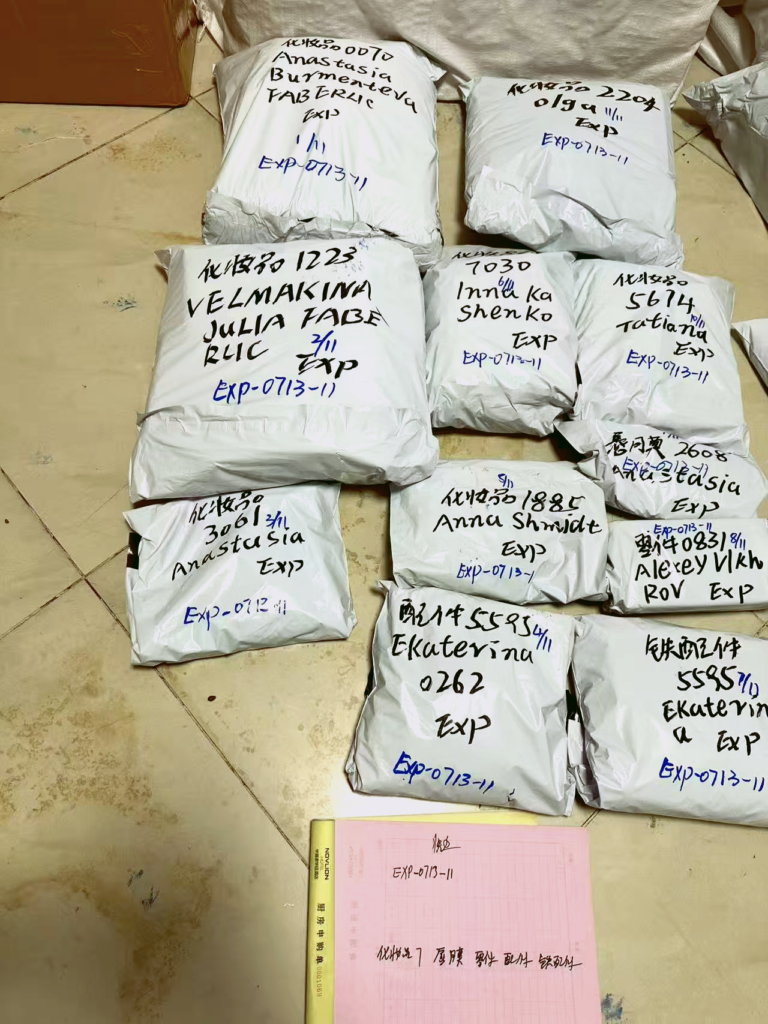 化妆品0070
Anastasia
Burmenteva
FABERLIC
Exp
1/11
EXP-0713-11
化妆品 2204
olga 11/11
Exp
EXP-0713-11
化妆品1223
VELMAKINA
JULIA FABE
RLIC 2/11
Exp
EXP-0713-11
7030
6/11
Inna Ka
shenko
Exp
EXP-0713-11
化妆品
5674
10/11
Tatiana
Exp
EXP-0713-11
2608
EXP-0713-11
anastasia
Exp
化妆品
3061 3/11
Anastasia
Exp
EXP-0713-11
9/11
化妆品1885
Anna Shmidt
Exp
EXP-0713-1
EXP-0713-11
零件0831 8/11
Alexey Vikh
ROV Exp
配件5595 4/11
Ekaterina
0262
Exp
Exp-0713-11
铁配件
5595 7/11
Ekaterin
a Exp
EXP-0713-11
NOVLION
EXP-0713-11
化妆品7 唇膜 零件 配件 铁配件